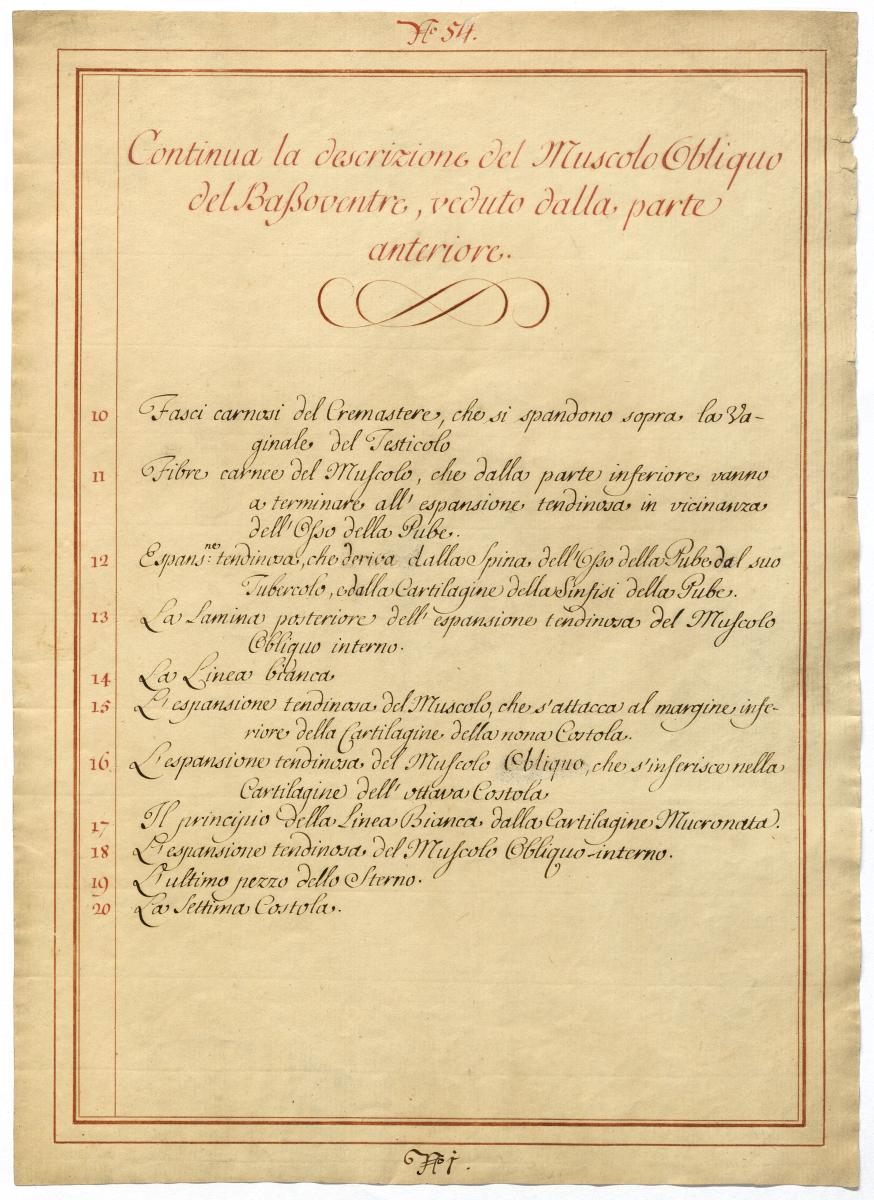 N.º 54.
Continua la descrizione del Muscolo Obliquo
del Baßoventre, veduto dalla parte
anteriore.
10 Fasci carnosi del Cremastere, che si spandono sopra la Va-
ginale del Testicolo
11 Fibre carnee del Muſcolo, che dalla parte inferiore vanno
a terminare all' espansione tendinosa in vicinanza
dell'Oſso della Pube.
12 Espans.ne tendinosa, che deriva dalla Spina dell'Oſso della Pube dal suo
Tubercolo, e dalla Cartilagine della Sinfisi della Pube.
13 La Lamina posteriore dell' espansione tendinosa del Muſcolo
Obliquo interno.
14 La Linea bianca
15 L'espansione tendinosa del Muscolo, che s'attacca al margine infe-
riore della Cartilagine della nona Costola.
16 L'espansione tendinosa del Muſcolo Obliquo, che s'inserisce nella
Cartilagine dell' ottava Costola
17 Il principio della Linea Bianca dalla Cartilagine Mucronata.
18 L'espansione tendinosa del Muſcolo Obliquo-interno.
19 L'ultimo pezzo dello Sterno.
20 La Settima Costola.